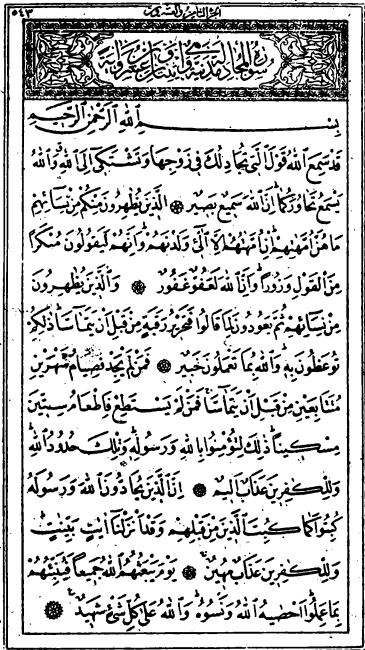 الجزء الثامن والعشرون ٥٤٣
سورة المجادلة مدنية وهي اثنتان وعشرون آية
بِسْمِ اللهِ الرَّحْمٰنِ الرَّحِيمِ
قَدْ سَمِعَ اللهُ قَوْلَ الَّتِي تُجَادِلُكَ فِي زَوْجِهَا وَتَشْتَكِي إِلَى اللهِ وَاللهُ
يَسْمَعُ تَحَاوُرَكُمَا إِنَّ اللهَ سَمِيعٌ بَصِيرٌ الَّذِينَ يُظٰهِرُونَ مِنْكُمْ مِنْ نِسَائِهِمْ
مَا هُنَّ أُمَّهٰتِهِمْ إِنْ أُمَّهٰتُهُمْ إِلَّا الّٰٓـِٔي وَلَدْنَهُمْ وَإِنَّهُمْ لَيَقُولُونَ مُنْكَرًا
مِنَ الْقَوْلِ وَزُورًا وَإِنَّ اللهَ لَعَفُوٌّ غَفُورٌ وَالَّذِينَ يُظٰهِرُونَ
مِنْ نِسَائِهِمْ ثُمَّ يَعُودُونَ لِمَا قَالُوا فَتَحْرِيرُ رَقَبَةٍ مِنْ قَبْلِ أَنْ يَتَمَاسَّا ذٰلِكُمْ
تُوعَظُونَ بِهِ وَاللهُ بِمَا تَعْمَلُونَ خَبِيرٌ فَمَنْ لَمْ يَجِدْ فَصِيَامُ شَهْرَيْنِ
مُتَتَابِعَيْنِ مِنْ قَبْلِ أَنْ يَتَمَاسَّا فَمَنْ لَمْ يَسْتَطِعْ فَإِطْعَامُ سِتِّينَ
مِسْكِينًا ذٰلِكَ لِتُؤْمِنُوا بِاللهِ وَرَسُولِهِ وَتِلْكَ حُدُودُ اللهِ
وَلِلْكٰفِرِينَ عَذَابٌ أَلِيمٌ إِنَّ الَّذِينَ يُحَادُّونَ اللهَ وَرَسُولَهُ
كُبِتُوا كَمَا كُبِتَ الَّذِينَ مِنْ قَبْلِهِمْ وَقَدْ أَنْزَلْنَا اٰيٰتٍ بَيِّنٰتٍ
وَلِلْكٰفِرِينَ عَذَابٌ مُهِينٌ يَوْمَ يَبْعَثُهُمُ اللهُ جَمِيعًا فَيُنَبِّئُهُمْ
بِمَا عَمِلُوا أَحْصٰيهُ اللهُ وَنَسُوهُ وَاللهُ عَلٰى كُلِّ شَيْءٍ شَهِيدٌ